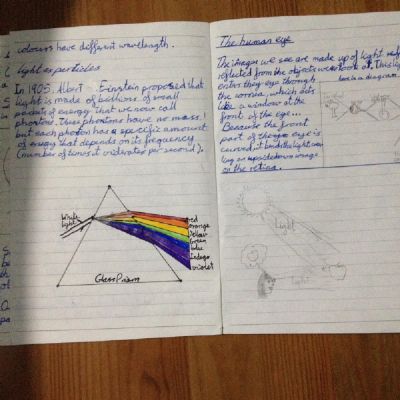 colours have different wavelength.
Light as particles
In 1905, Albert Einstein proposed that
light is made of billions of small
packets of energy that we now call
photons. These photons have no mass,
but each photon has a specific amount
of energy that depends on its frequency
(number of times it viderates per second).
White
light
red
orange
Yellow
Green
blue
Indego
violet
Glass Prism
The human eye
The images we see are made up of light
reflected from the objects we look at. This light
enters they eye through
the cornea, which acts
like a window at the
front of the eye...
Because the front
part of the eye is
curved, it bends the light
an upside down image
on the retina.
here is a diagram.
Light
Light